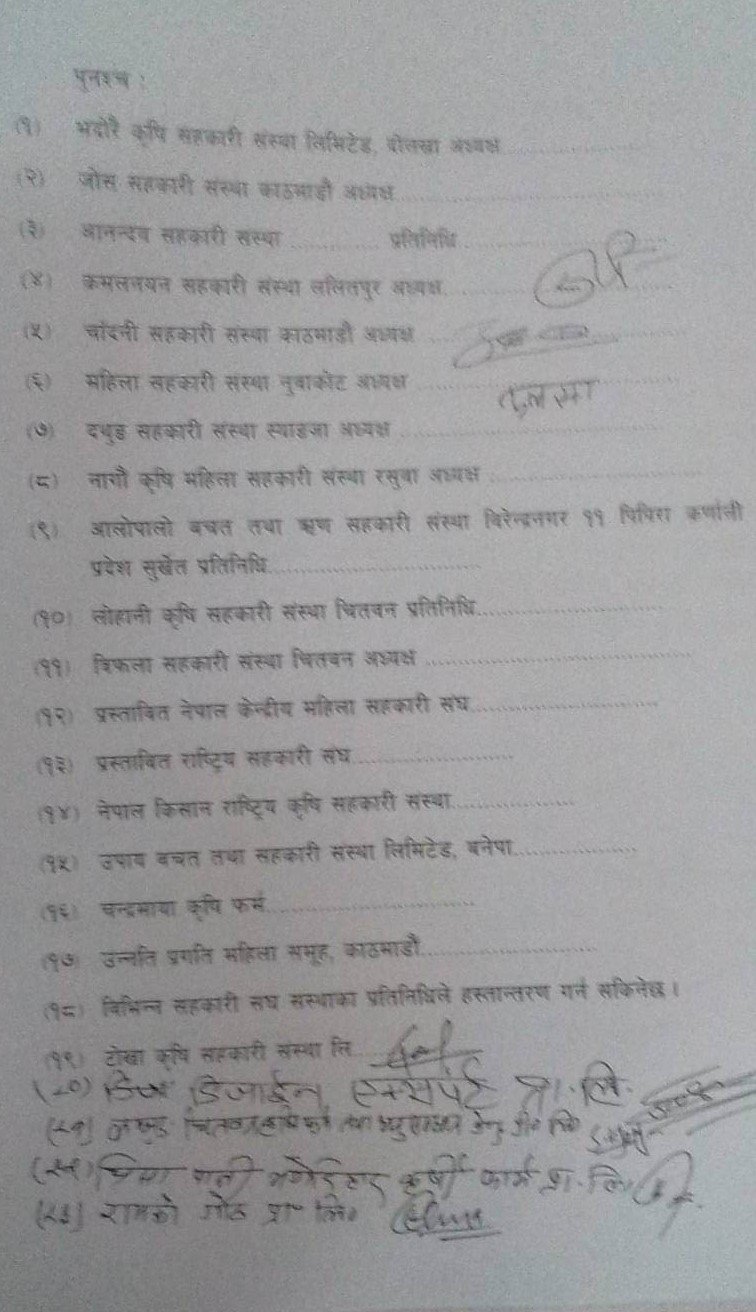 पुनश्च :
(१) भदौरे कृषि सहकारी संस्था लिमिटेड, दोलखा अध्यक्ष....................
(२) जोस सहकारी संस्था काठमाडौं अध्यक्ष....................
(३) आनन्दवन सहकारी संस्था ............. प्रतिनिधि....................
(४) कमलनयन सहकारी संस्था ललितपुर अध्यक्ष....................
(५) चाँदनी सहकारी संस्था काठमाडौं अध्यक्ष ....................
(६) महिला सहकारी संस्था नुवाकोट अध्यक्ष ....................
(७) सहकारी संस्था स्याङजा अध्यक्ष ....................
(८) नागौ कृषि महिला सहकारी संस्था रसुवा अध्यक्ष ....................
(९) आलोपालो बचत तथा ऋण सहकारी संस्था विरेन्द्रनगर ११ पिपिरा कर्णाली
प्रदेश सुर्खेत प्रतिनिधि....................
(१०) लोहानी कृषि सहकारी संस्था चितवन प्रतिनिधि....................
(११) त्रिफला सहकारी संस्था चितवन अध्यक्ष ....................
(१२) प्रस्तावित नेपाल केन्द्रीय महिला सहकारी संघ....................
(१३) प्रस्तावित राष्ट्रिय सहकारी संघ....................
(१४) नेपाल किसान राष्ट्रिय कृषि सहकारी संस्था....................
(१५) उपाय बचत तथा सहकारी संस्था लिमिटेड, बनेपा....................
(१६) चन्द्रमाया कृषि फर्म....................
(१७) उन्नति प्रगति महिला समूह, काठमाडौं....................
(१८) विभिन्न सहकारी संघ संस्थाका प्रतिनिधिले हस्तान्तरण गर्न सकिनेछ ।
(१९) टोखा कृषि सहकारी संस्था लि...
(२०) डिजाईन एक्सपर्ट प्रा.लि.
(२१) तथा
(२२) कृषी फार्म प्रा.लि.
(२३) रामको गोठ प्रा० लि०